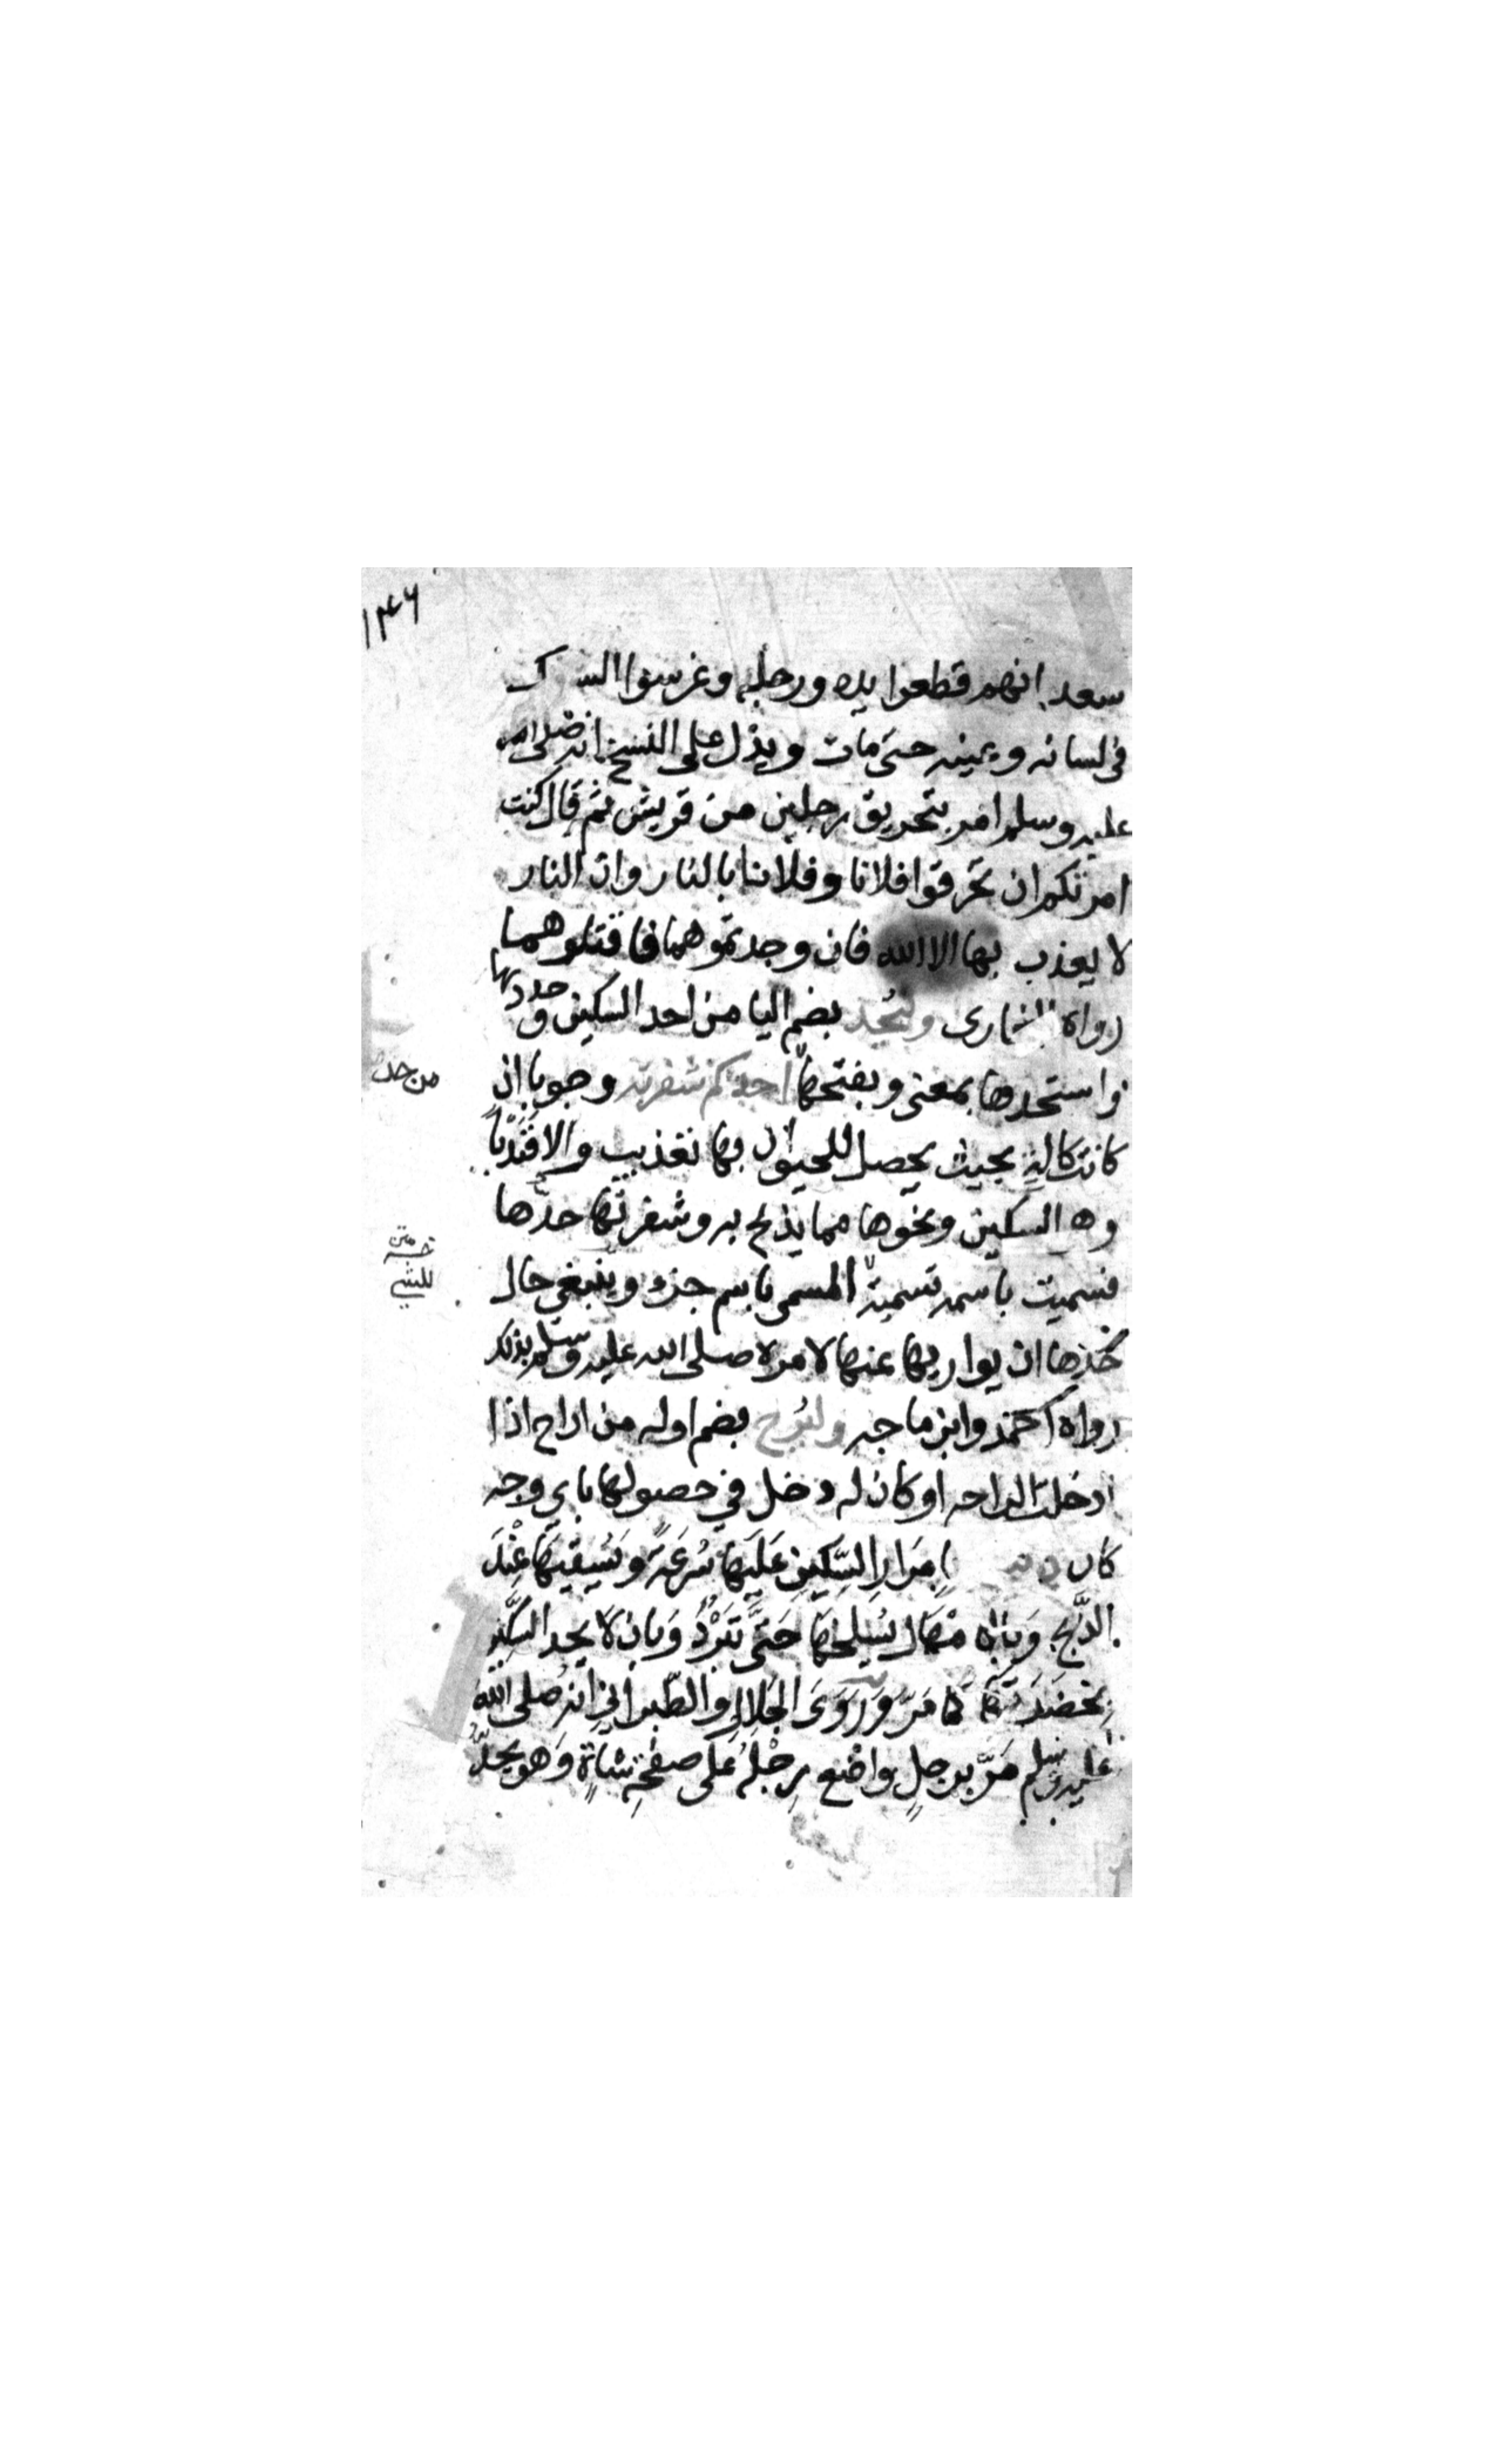 ١٣٦
سعد انهم قطعوا يده ورجله وغرسوا الشوك
في لسانه وعينه حتى مات ويدل على النسخ انه صلى الله
عليه وسلم امر بتحريق رجلين من قريش ثم قال كنت
امرتكم ان تحرقوا فلانا وفلانا بالنار وان النار
لا يعذب بها الا الله فان وجدتموهما فاقتلوهما
رواه البخارى وليُحد بضم اليا من احد السكين وحددها
واستحدها بمعنى وبفتحها احدكم شفرته وجوبا ان
من حد
كانت كالة بحيث يحصل للحيوان بها تعذيب والا فندبا
وهي السكين ونحوها مما يذبح به وشفرتها حدها
فسميت باسمه تسمية المسمى باسم جزء وينبغي حال
للشي
حدها ان يواريها عنها لامره صلى الله عليه وسلم بذلك
رواه احمد وابن ماجه وليُرح بضم اوله من اراح اذا
ادخلت الراحه او كان له دخل في حصولها باي وجه
كان اِمرَارِ السِّكِينِ عَلَيهَا سُرعَةً وَيُسِقيهَا عِنْدَ
الذَّبح وَبان يُسلِخهَا حَتَّى تَبرُدَ وَبان لَا يحد السكِّين
بحضرَتها كما مَرَّ وَرَوَى الخَلال والطّبراني انه صلى الله
عليه وسلم مَرَّ برجلٍ واضع رِجْلَهُ عَلى صفحَةِ شاةٍ وَهو يحدُّ